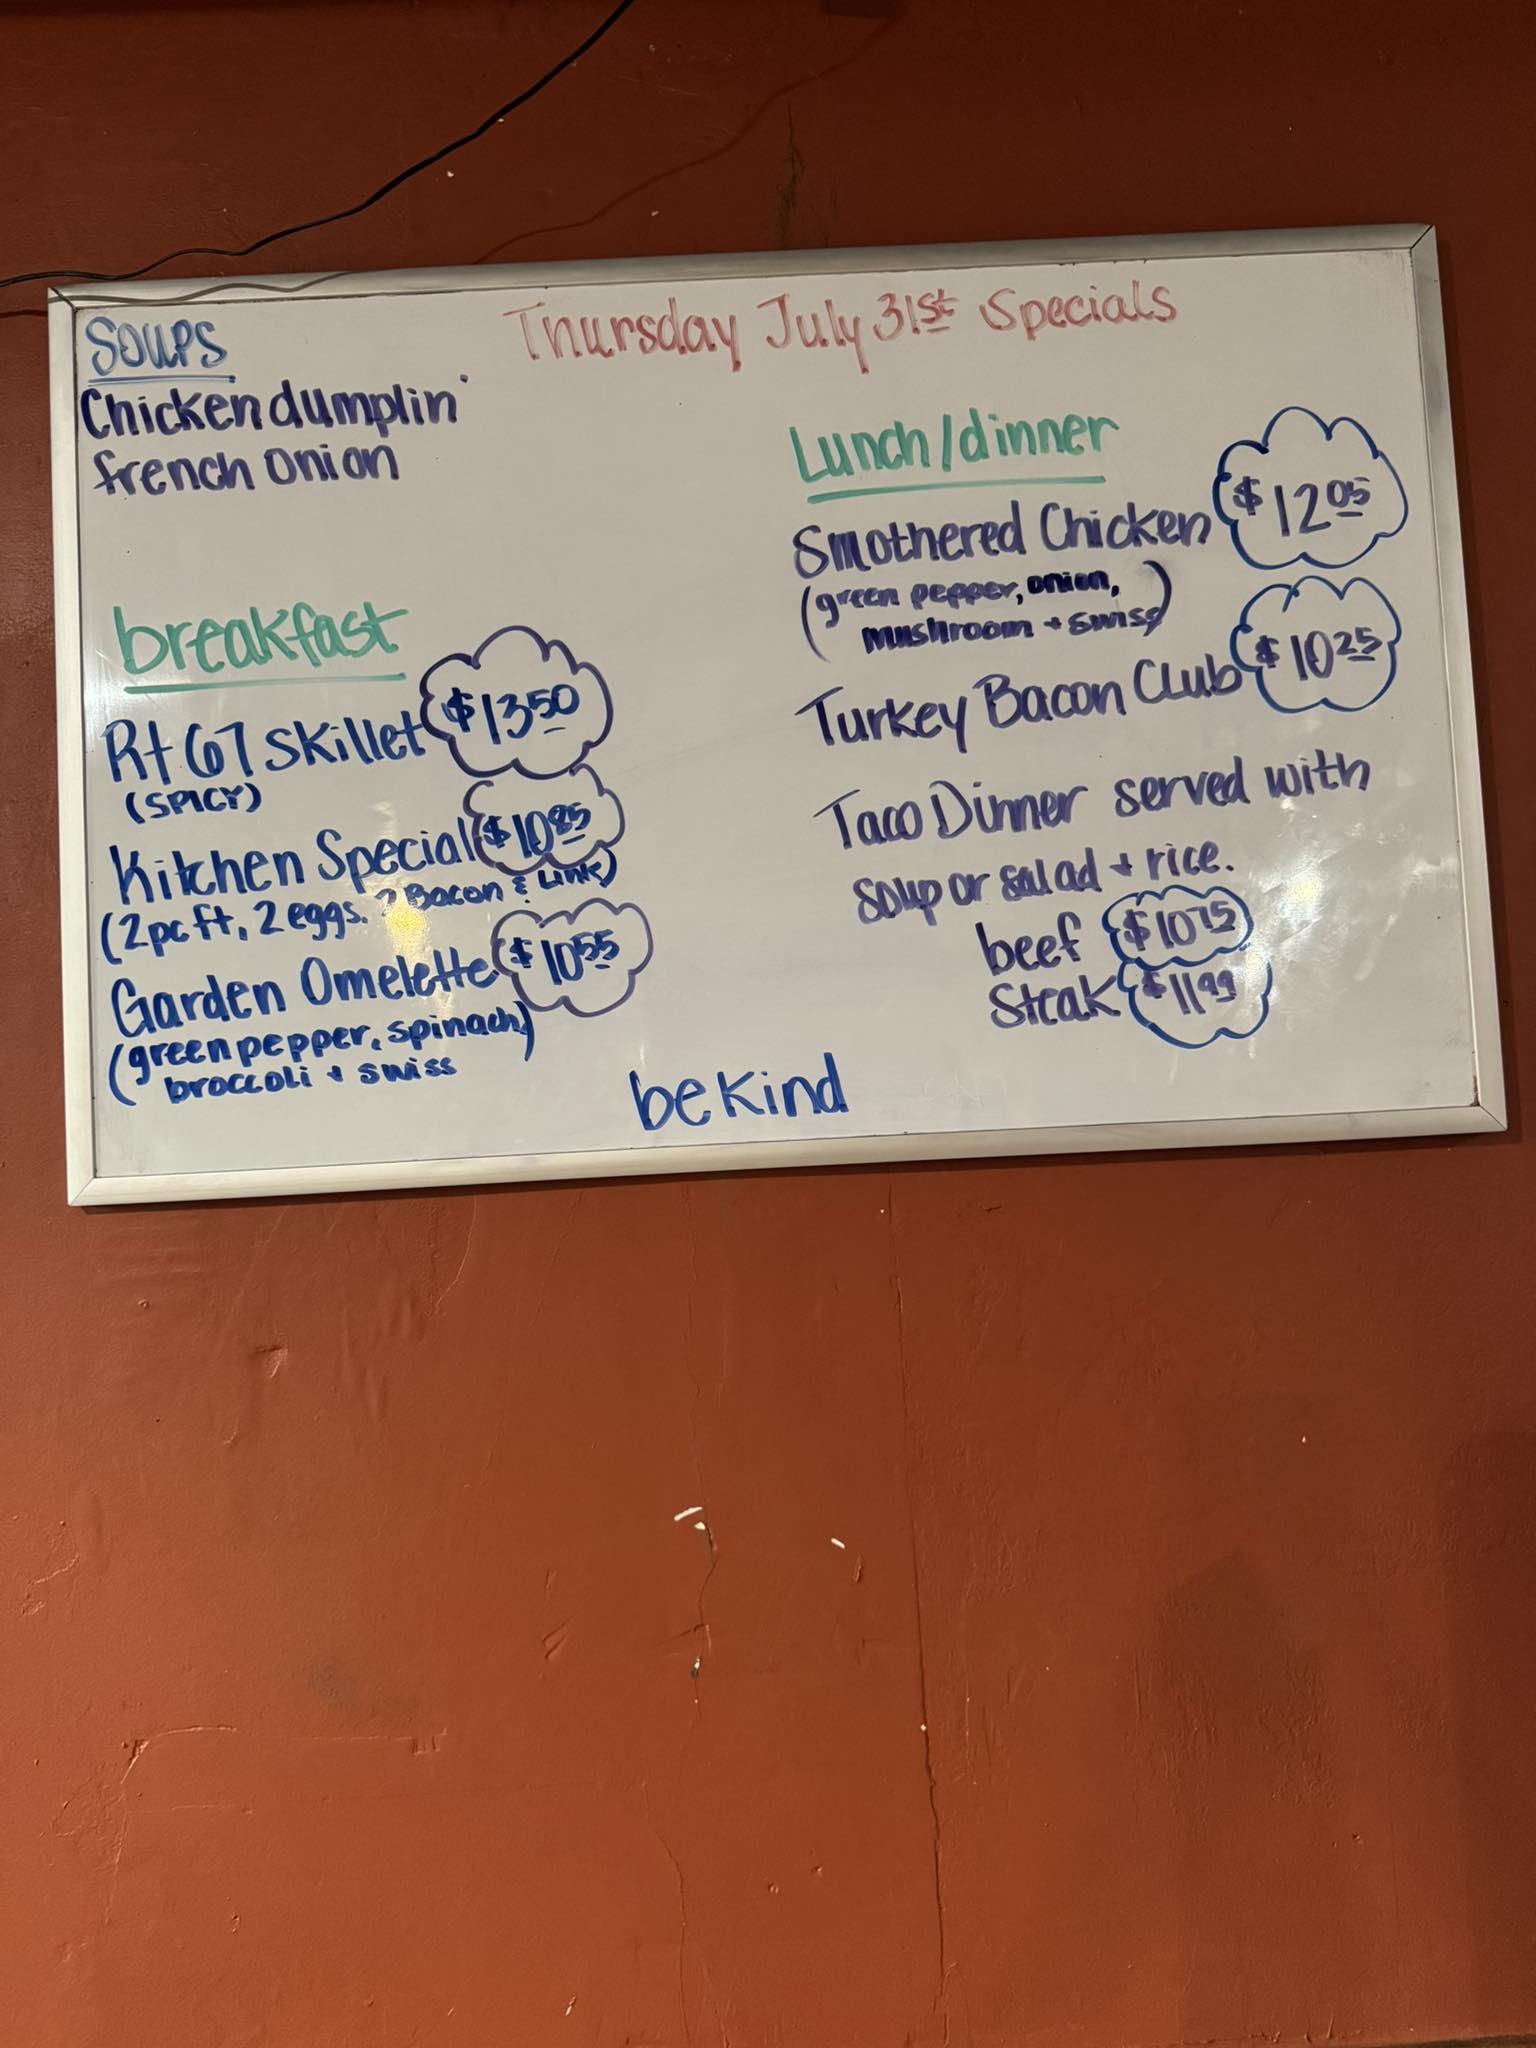 Thursday July 31st Specials
Soups
Chicken dumplin'
french onion
breakfast
Rt 67 Skillet $13.50
(SPICY)
Kitchen Special $10.85
(2pc ft, 2 eggs, 2 Bacon & Link)
Garden Omelette $10.55
(green pepper, spinach,
broccoli + swiss
Lunch/dinner
Smothered Chicken $12.05
(green pepper, onion,
mushroom + swiss)
Turkey Bacon Club $10.25
Taco Dinner served with
soup or salad + rice.
beef $10.75
Steak $11.99
be kind